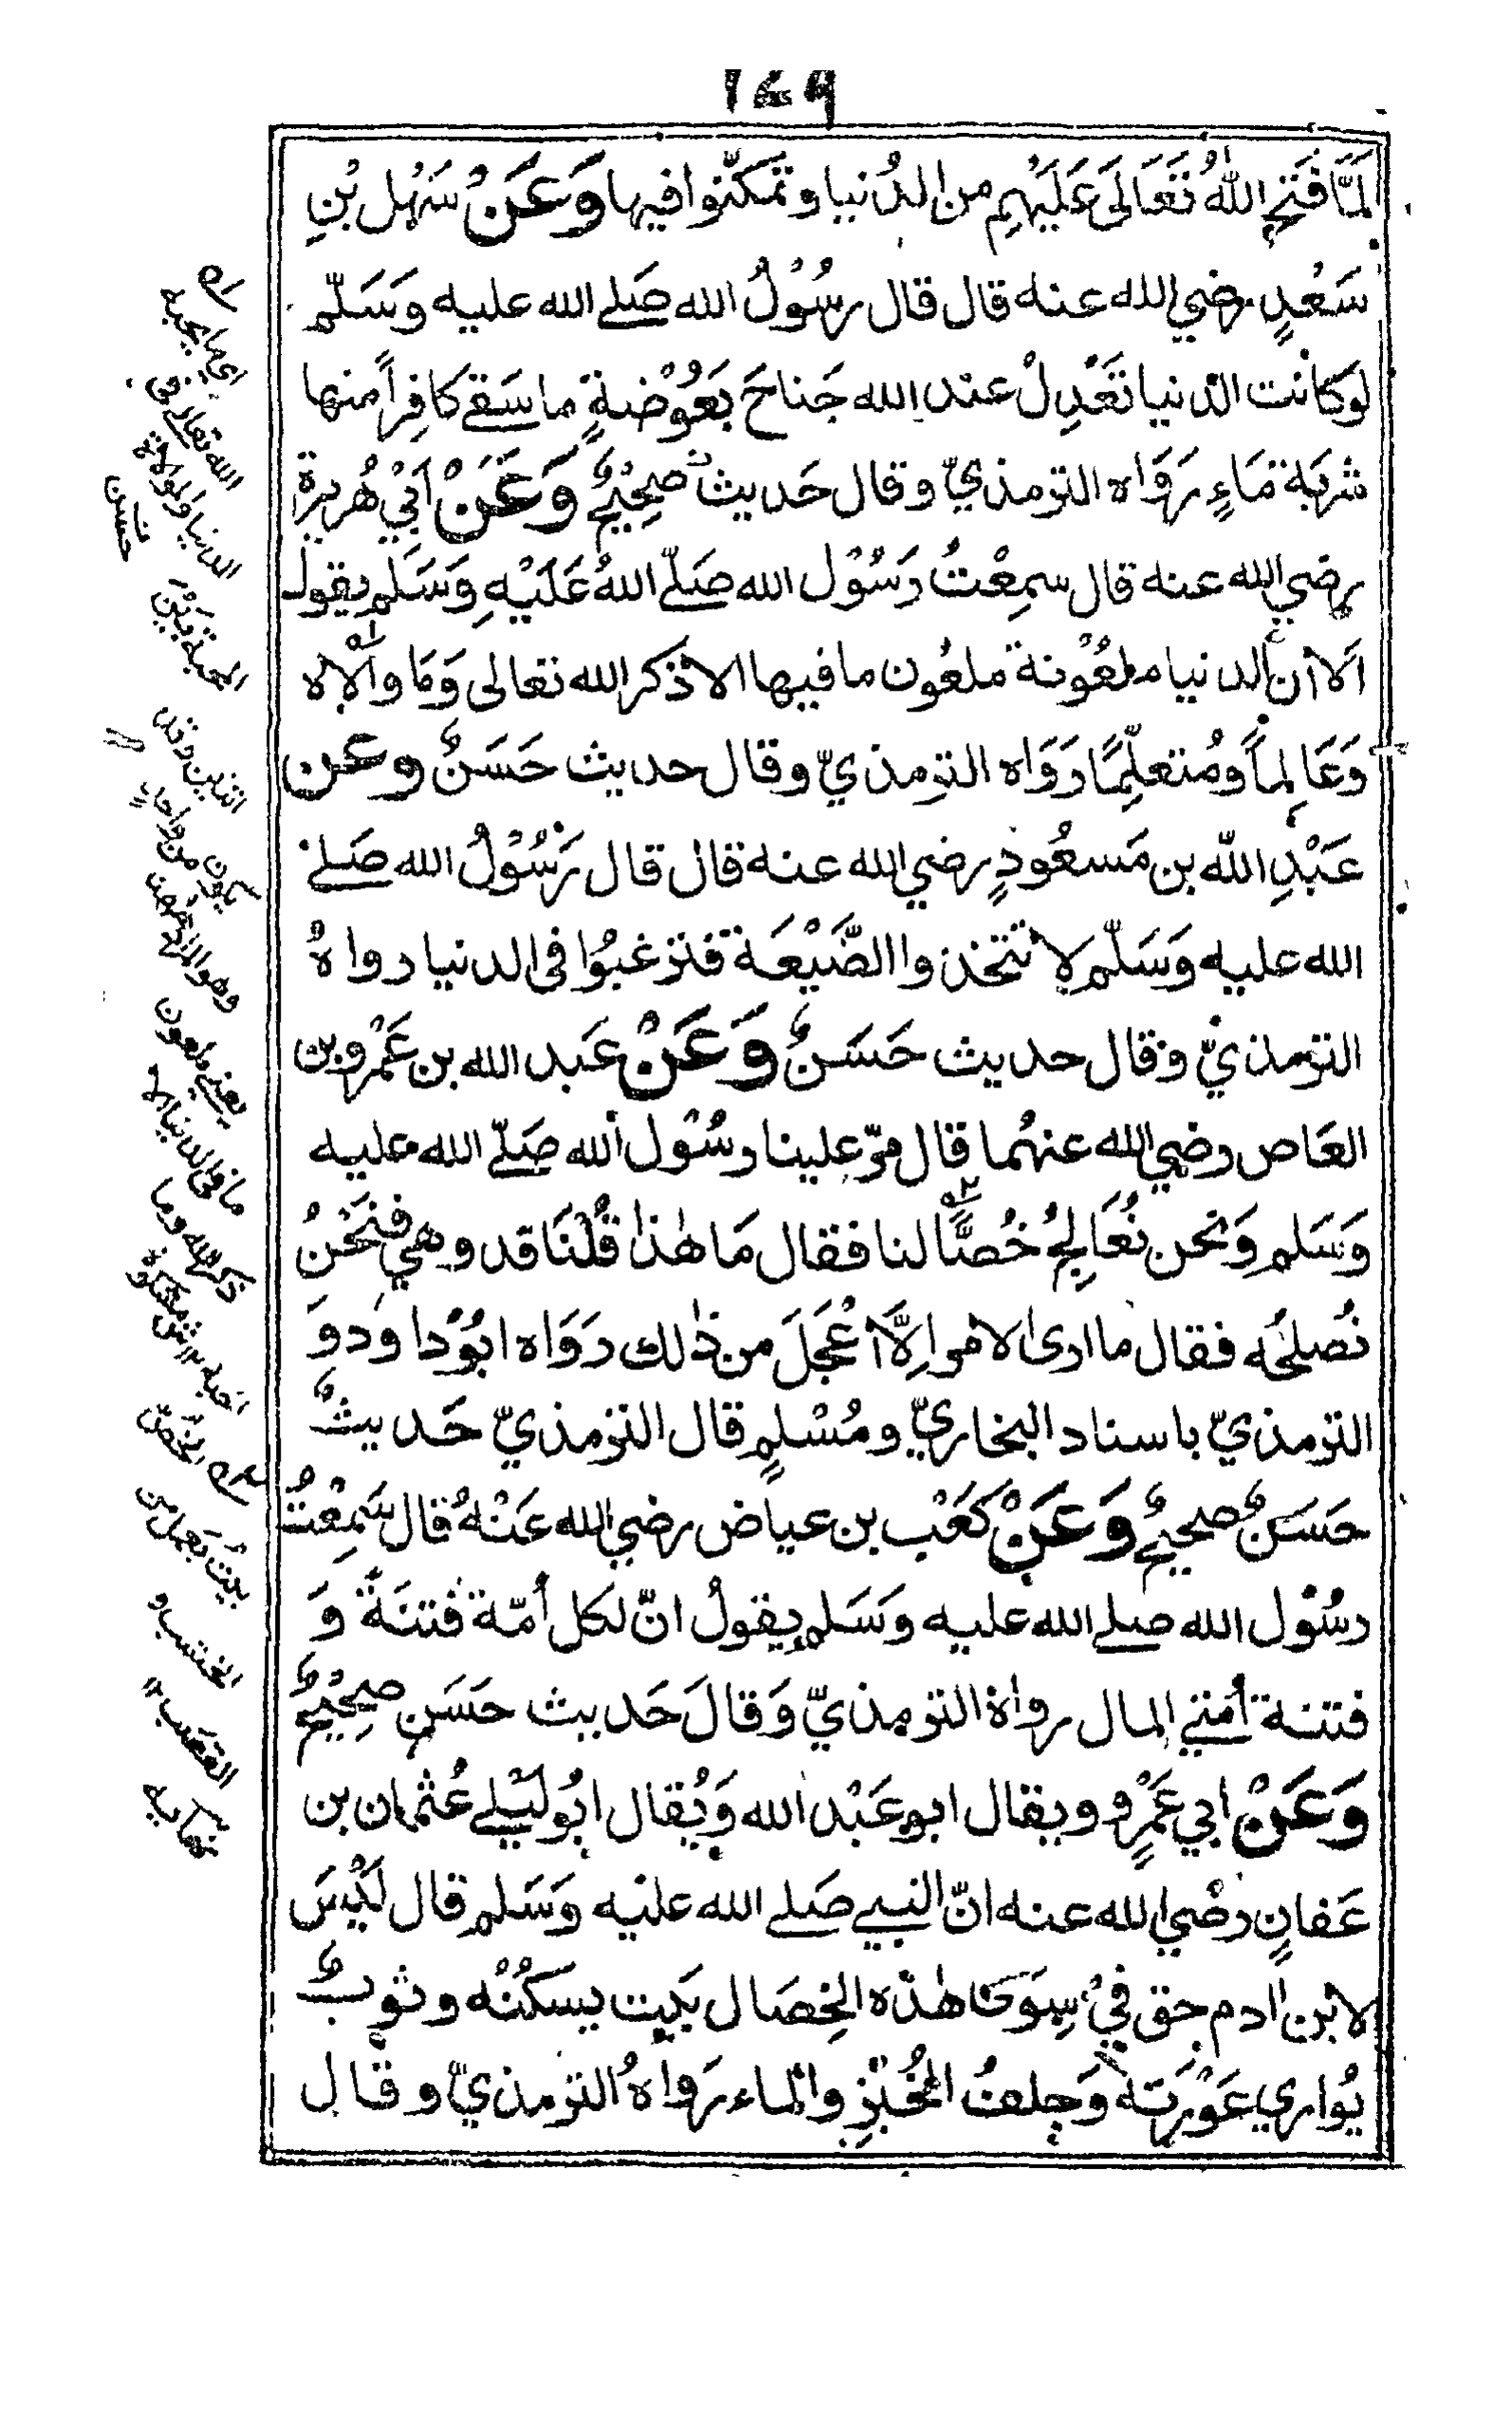 ١٤٩
لَمَّا فَتَحَ اللهُ تَعَالَى عَلَيْهِم من الدُنيا وتمَكّنوا فيها وَعَنْ سَهْل بْنِ
سَعْدٍ رضي الله عنه قال قال رسُوْلُ الله صَلى الله عليه وَسَلّم
لوكانت الدنيا تَعْدِلْ عند الله جَناحَ بَعُوْضةٍ ما سَقى كافِراً منها
شربَة مَاءٍ رَوَاه الترمذيّ وقال حَديث صَحِيْحٌ وَعَنْ اَبيْ هُريرة
رضي الله عنه قال سمِعْتُ رَسُوْل الله صَلّى اللهُ عَلَيْهِ وَسَلم يقول
اَلا ان الدنيا ملعُوْنة ملعُون ما فيها الا ذكر الله تعالى وَمَا والاه
وَعَالِماً ومُتعلِّمًا رَوَاه الترِمذيّ وقال حديث حَسَنٌ وعن
عَبْدِ اللّه بن مَسعُودٍ رضي الله عنه قال قال رَسُوْلُ الله صَلى
الله عليه وَسَلّم لا تتخذوا الضَّيْعَة فترغبُوْا فى الدنيا رواهُ
الترمذيّ وقال حديث حَسَنٌ وَعَنْ عَبد الله بن عَمْرو بن
العَاص رضي الله عنهُما قال مرّ علينا رسُوْل الله صَلّى الله عليه
وَسَلم وَنحن نُعَالِجُ خُصًّا لنا فقال مَا هٰذا قُلْنَا قد وهي فنَحْنُ
نُصلحُه فقال ما ارى الامر اِلَّا اَعْجَلَ من ذٰلك رَوَاه ابُوْداودوَ
الترمذيّ باسناد البخاريّ ومُسْلمٍ قال الترمذيّ حَديثٌ
حَسَنٌ صحيحٌ وَعَنْ كَعْب بن عياض رضي الله عَنْهُ قال سَمِعْتُ
رسُوْل الله صلى الله عليه وَسَلم يقولُ انّ لكل اُمّة فتنَةً وَ
فتنة اُمتي المال رواهُ الترمذيّ وَقالَ حَديث حَسَن صحِيْحٌ
وَعَنْ ابي عَمْرٍو ويقال ابو عَبْد الله وَيُقال ابُو لَيْلى عُثمان بن
عَفانٍ رضي الله عنه انّ النبي صَلى الله عليْه وَسَلم قال لَيْسَ
لابن ادم حق فيْ سِوَى هٰذه الخِصَال بَيت يسكنُهْ وثوبٌ
يُواري عَوْرَته وَجِلفُ الخُبْزِ والماء رَواهُ الترمذيّ وقال
اي ما يحبه
الله تعالى في
الدنيا والموالاة
المحبة بَيْنَ
اثنين وقد
يكون من واحدٍ
وهو المراد هٰهنا
يعني ملعون
ما في الدنيا الا
ذكر الله وما
احبه
الخُصّ
بيتُ يَعمل من
الخشب و
القصب